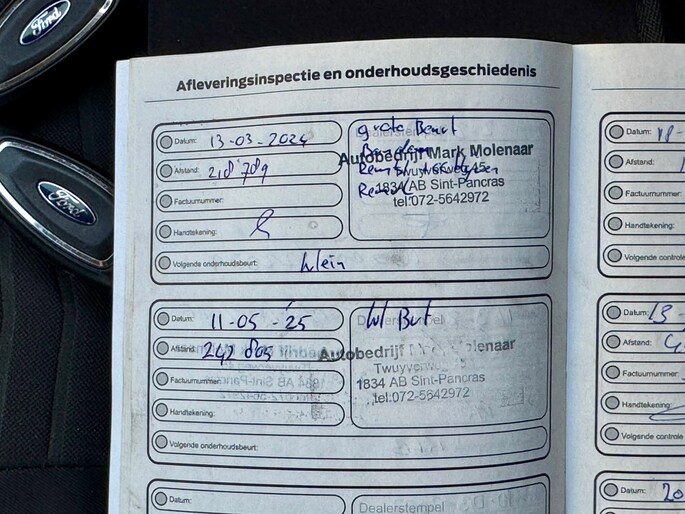 Ford
Ford
Afleveringsinspectie en onderhoudsgeschiedenis
Datum: 13-03-2024
Afstand: 218789
Factuurnummer:
Handtekening:
Volgende onderhoudsbeurt: klein
grote Beurt
Dealerstempel
Autobedrijf Mark Molenaar
Twuyverweg 45
1834 AB Sint-Pancras
tel:072-5642972
Datum: 11-05-25
Afstand: 242805
Factuurnummer:
Handtekening:
Volgende onderhoudsbeurt:
Kl Burt
Dealerstempel
Autobedrijf Molenaar
Twuyverweg
1834 AB Sint-Pancras
tel:072-5642972
Datum:
Dealerstempel
Datum: 18-
Afstand:
Factuurnummer:
Handtekening:
Volgende controle
Datum: 13-
Afstand:
Factuurnummer:
Handtekening:
Volgende controle
Datum: 20